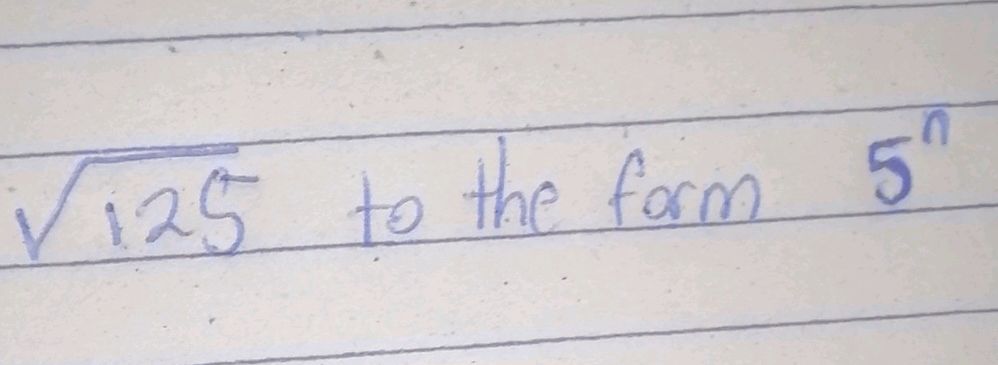 √125 to the form 5ⁿ